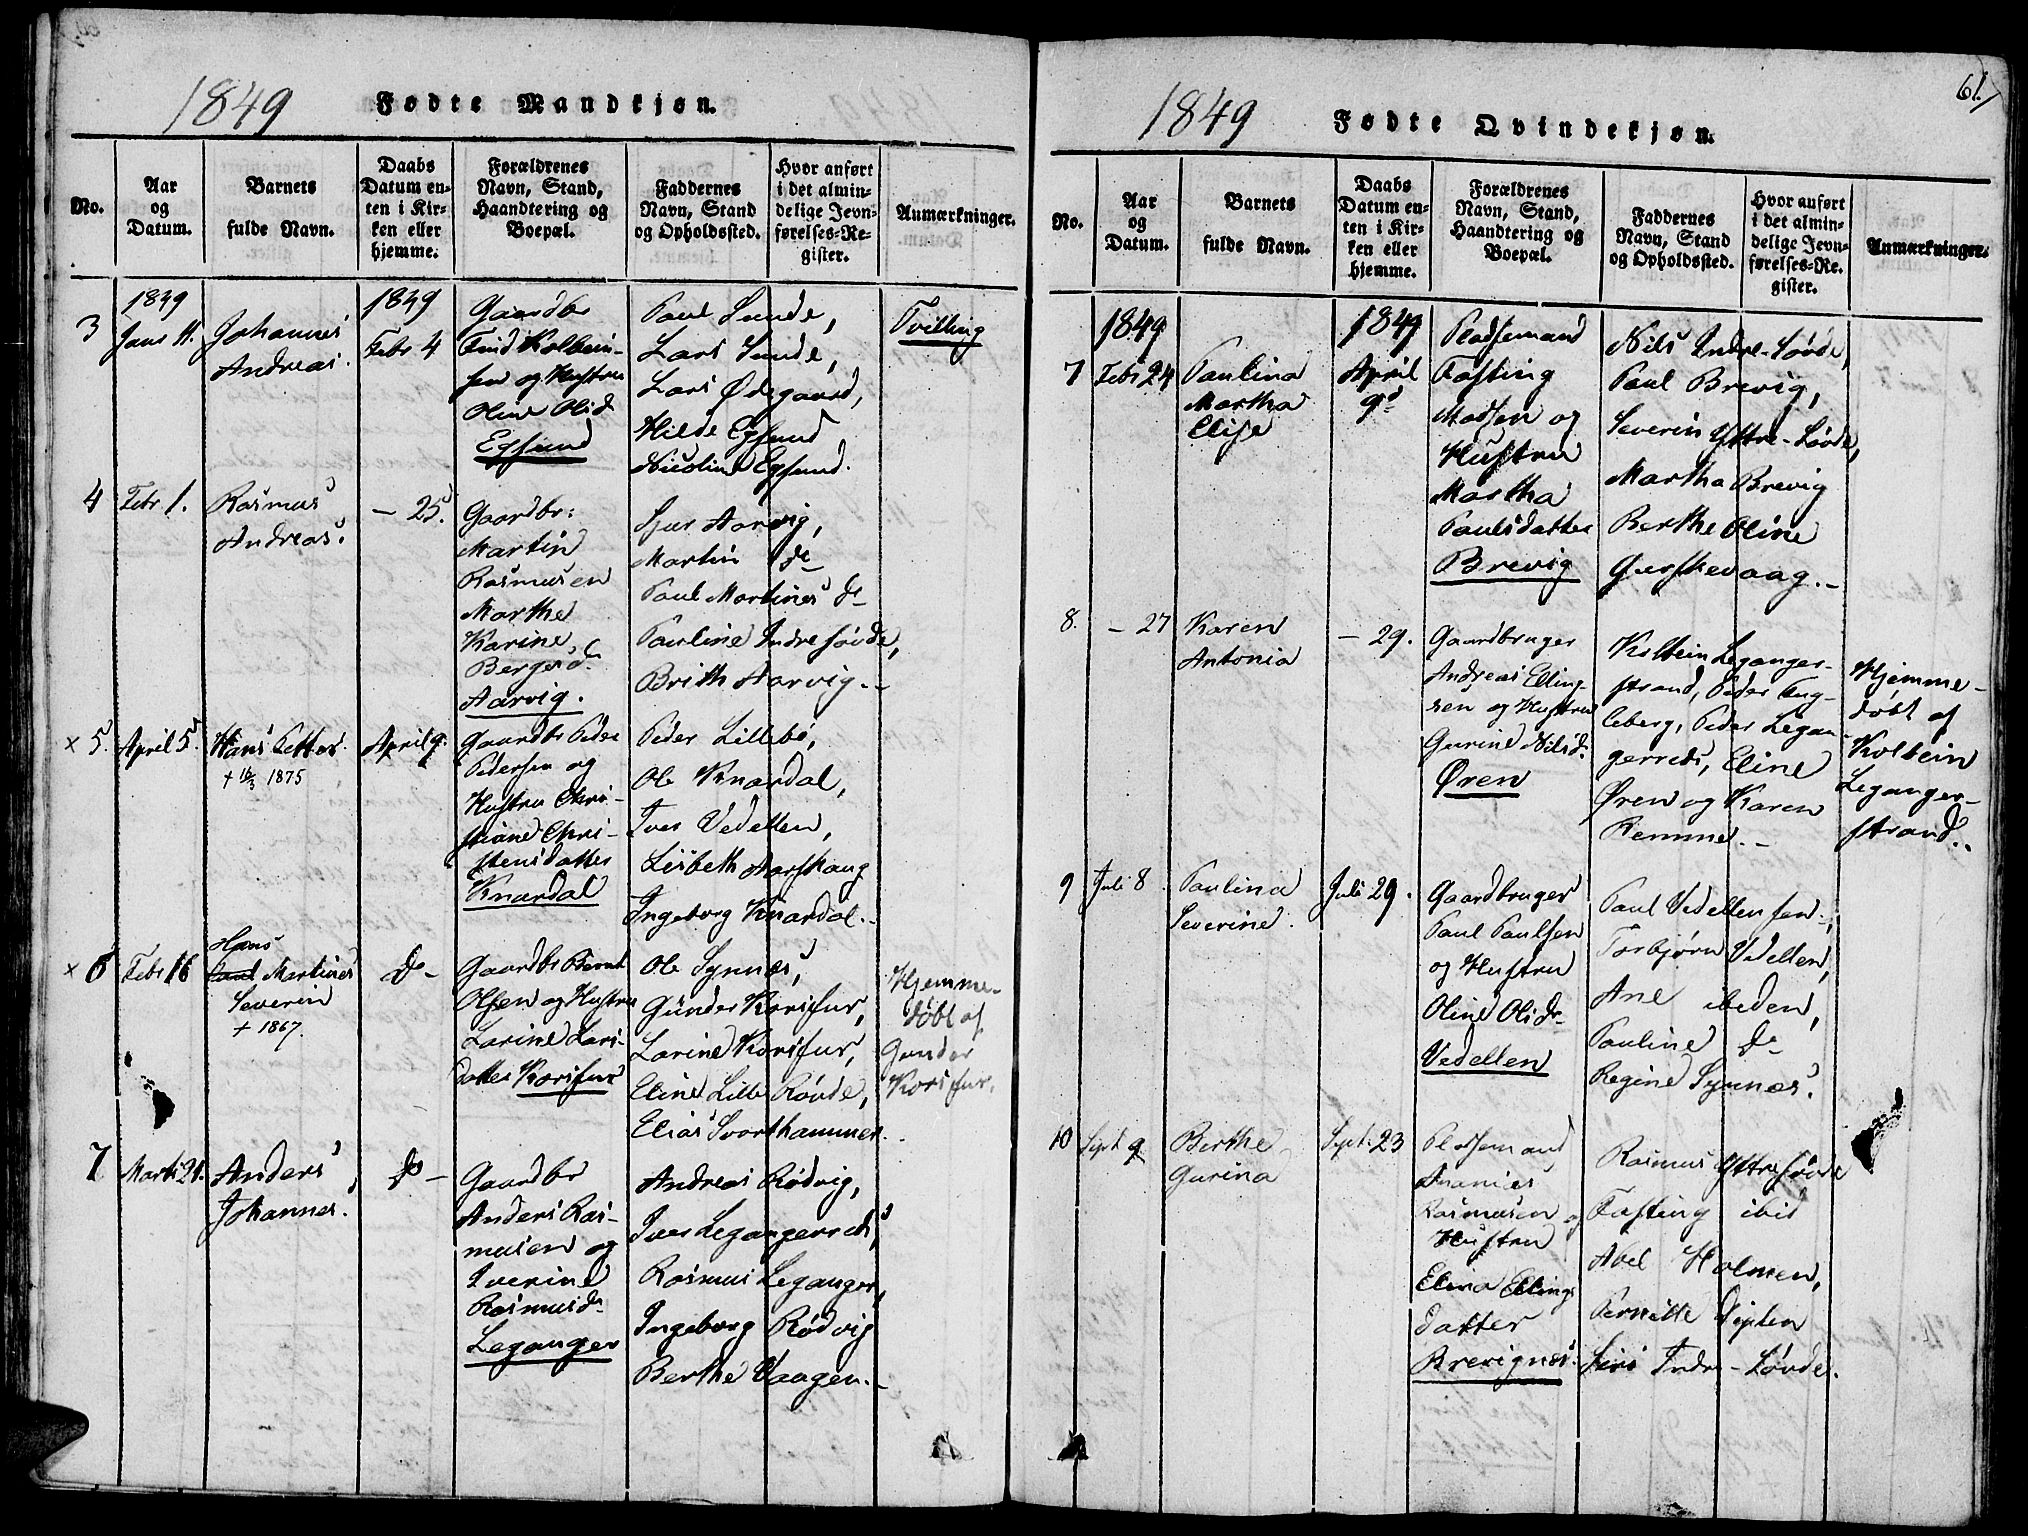 1849 Fødte Mandkjøn.
No.
Aar
og
Datum.
Barnets
fulde Navn.
Daabs
Datum en-
ten i Kir-
ken eller
hjemme.
Forældrenes
Navn, Stand,
Haandtering og
Boepæl.
Faddernes
Navn, Stand
og Opholdssted.
Hvor anført
i det almin-
delige Jevn-
førelses-Re-
gister.
Anmærkninger.
3
1849
Janr 11.
Johannes
Andreas.
1849
Febr 4
Gaardbr
Find Kolbein-
sen og Hustru
Oline Olsd
Egsund
Paul Sunde,
Lars Sunde,
Lars Ødegaard,
Hilde Egsund
Nicoline Egsund.
Tvilling
4
Febr 1.
Rasmus
Andreas.
- 25.
Gaardbr:
Martin
Rasmusen
Marthe
Karine
Bergesd.
Aarvig.
Sjur Aarvig,
Martin do
Paul Martines do
Pauline Indre søvde,
Brith Aarvig.-
x 5.
April 5.
Hans Petter.
+ 16/3 1875
April 9.
Gaardbr Peder
Pedersen og
Hustru Chri-
stiane Chri-
stensdatter
Knardal
Peder Lillebø,
Ole Knardal,
Iver Vedelden,
Lisbeth Aarskaug
Ingeborg Knardal.-
x 6
Febr 16
Hans
Martines
Severin
+ 1867.
do-
Gaardbr Bernt
Olsen og Hustru
Larine Lars-
datter Korsfur
Ole Synnæs,
Gunder Korsfur,
Larine Korsfur,
Eline Lille Røvde,
Elias Svorthammer.
Hjemme-
døbt af
Gunder
Korsfur.
7
Marts 21.
Anders
Johannes.
do-
Gaardbr
Anders Ras-
musen og
Iverine
Rasmusdr
Leganger
Andreas Rødvig,
Iver Legangerreds,
Rasmus Leganger,
Ingeborg Rødvig
Berthe Vaagen.-
61.
1849 Fødte Qvindekjøn.
No.
Aar
og
Datum.
Barnets
fulde Navn.
Daabs
Datum en-
ten i Kir-
ken eller
hjemme.
Forældrenes
Navn, Stand,
Haandtering og
Boepæl.
Faddernes
Navn, Stand
og Opholdssted.
Hvor anført
i det almin-
delige Jevn-
førelses-Re-
gister.
Anmærkninger.
7
1849
Febr 24
Paulina
Martha
Elise
1849
April
9d
Pladsemand
Fasting
Madsen og
Hustru
Martha
Paulsdatter
Brevig
Nils Indre-Søvde,
Paul Brevig,
Severin Yttre-Søvde,
Martha Brevig
Berthe Oline
Gurskevaag.-
8.
- 27
Karen
Antonia
- 29.
Gaardbruger
Andreas Elling-
sen og Hustru
Gurine Nilsdr
Øren
Kolbein Leganger-
strand, Peder Eng-
leberg, Peder Legan-
gerreds, Eline
Øren og Karen
Remme.-
Hjemme-
døbt af
Kolbein
Leganger-
strand.
9
Juli 8.
Paulina
Severine.
Juli 29.
Gaardbruger
Paul Paulsen
og Hustru
Oline Olsdr
Vedelden
Paul Vedelden sen.,
Torbjørn Vedelden,
Ane ibeden,
Pauline do
Regine Synnæs.
10
Sept 9
Berthe
Gurina
Sept: 23
Pladsemand
Ananias
Rasmusen og
Hustru
Elina Ellings
datter
Brevignæs.
Rasmus Yttre søvde
Fasting ibid
Abel Holmen,
Pernille Vepten
Siri Indre-Søvde.